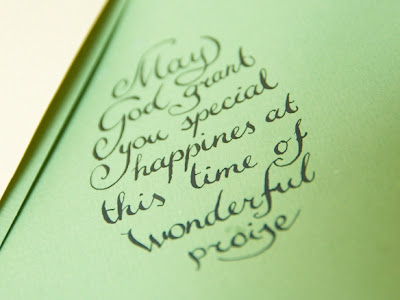 May
God grant
you special
happines at
this time of
wonderful
praise